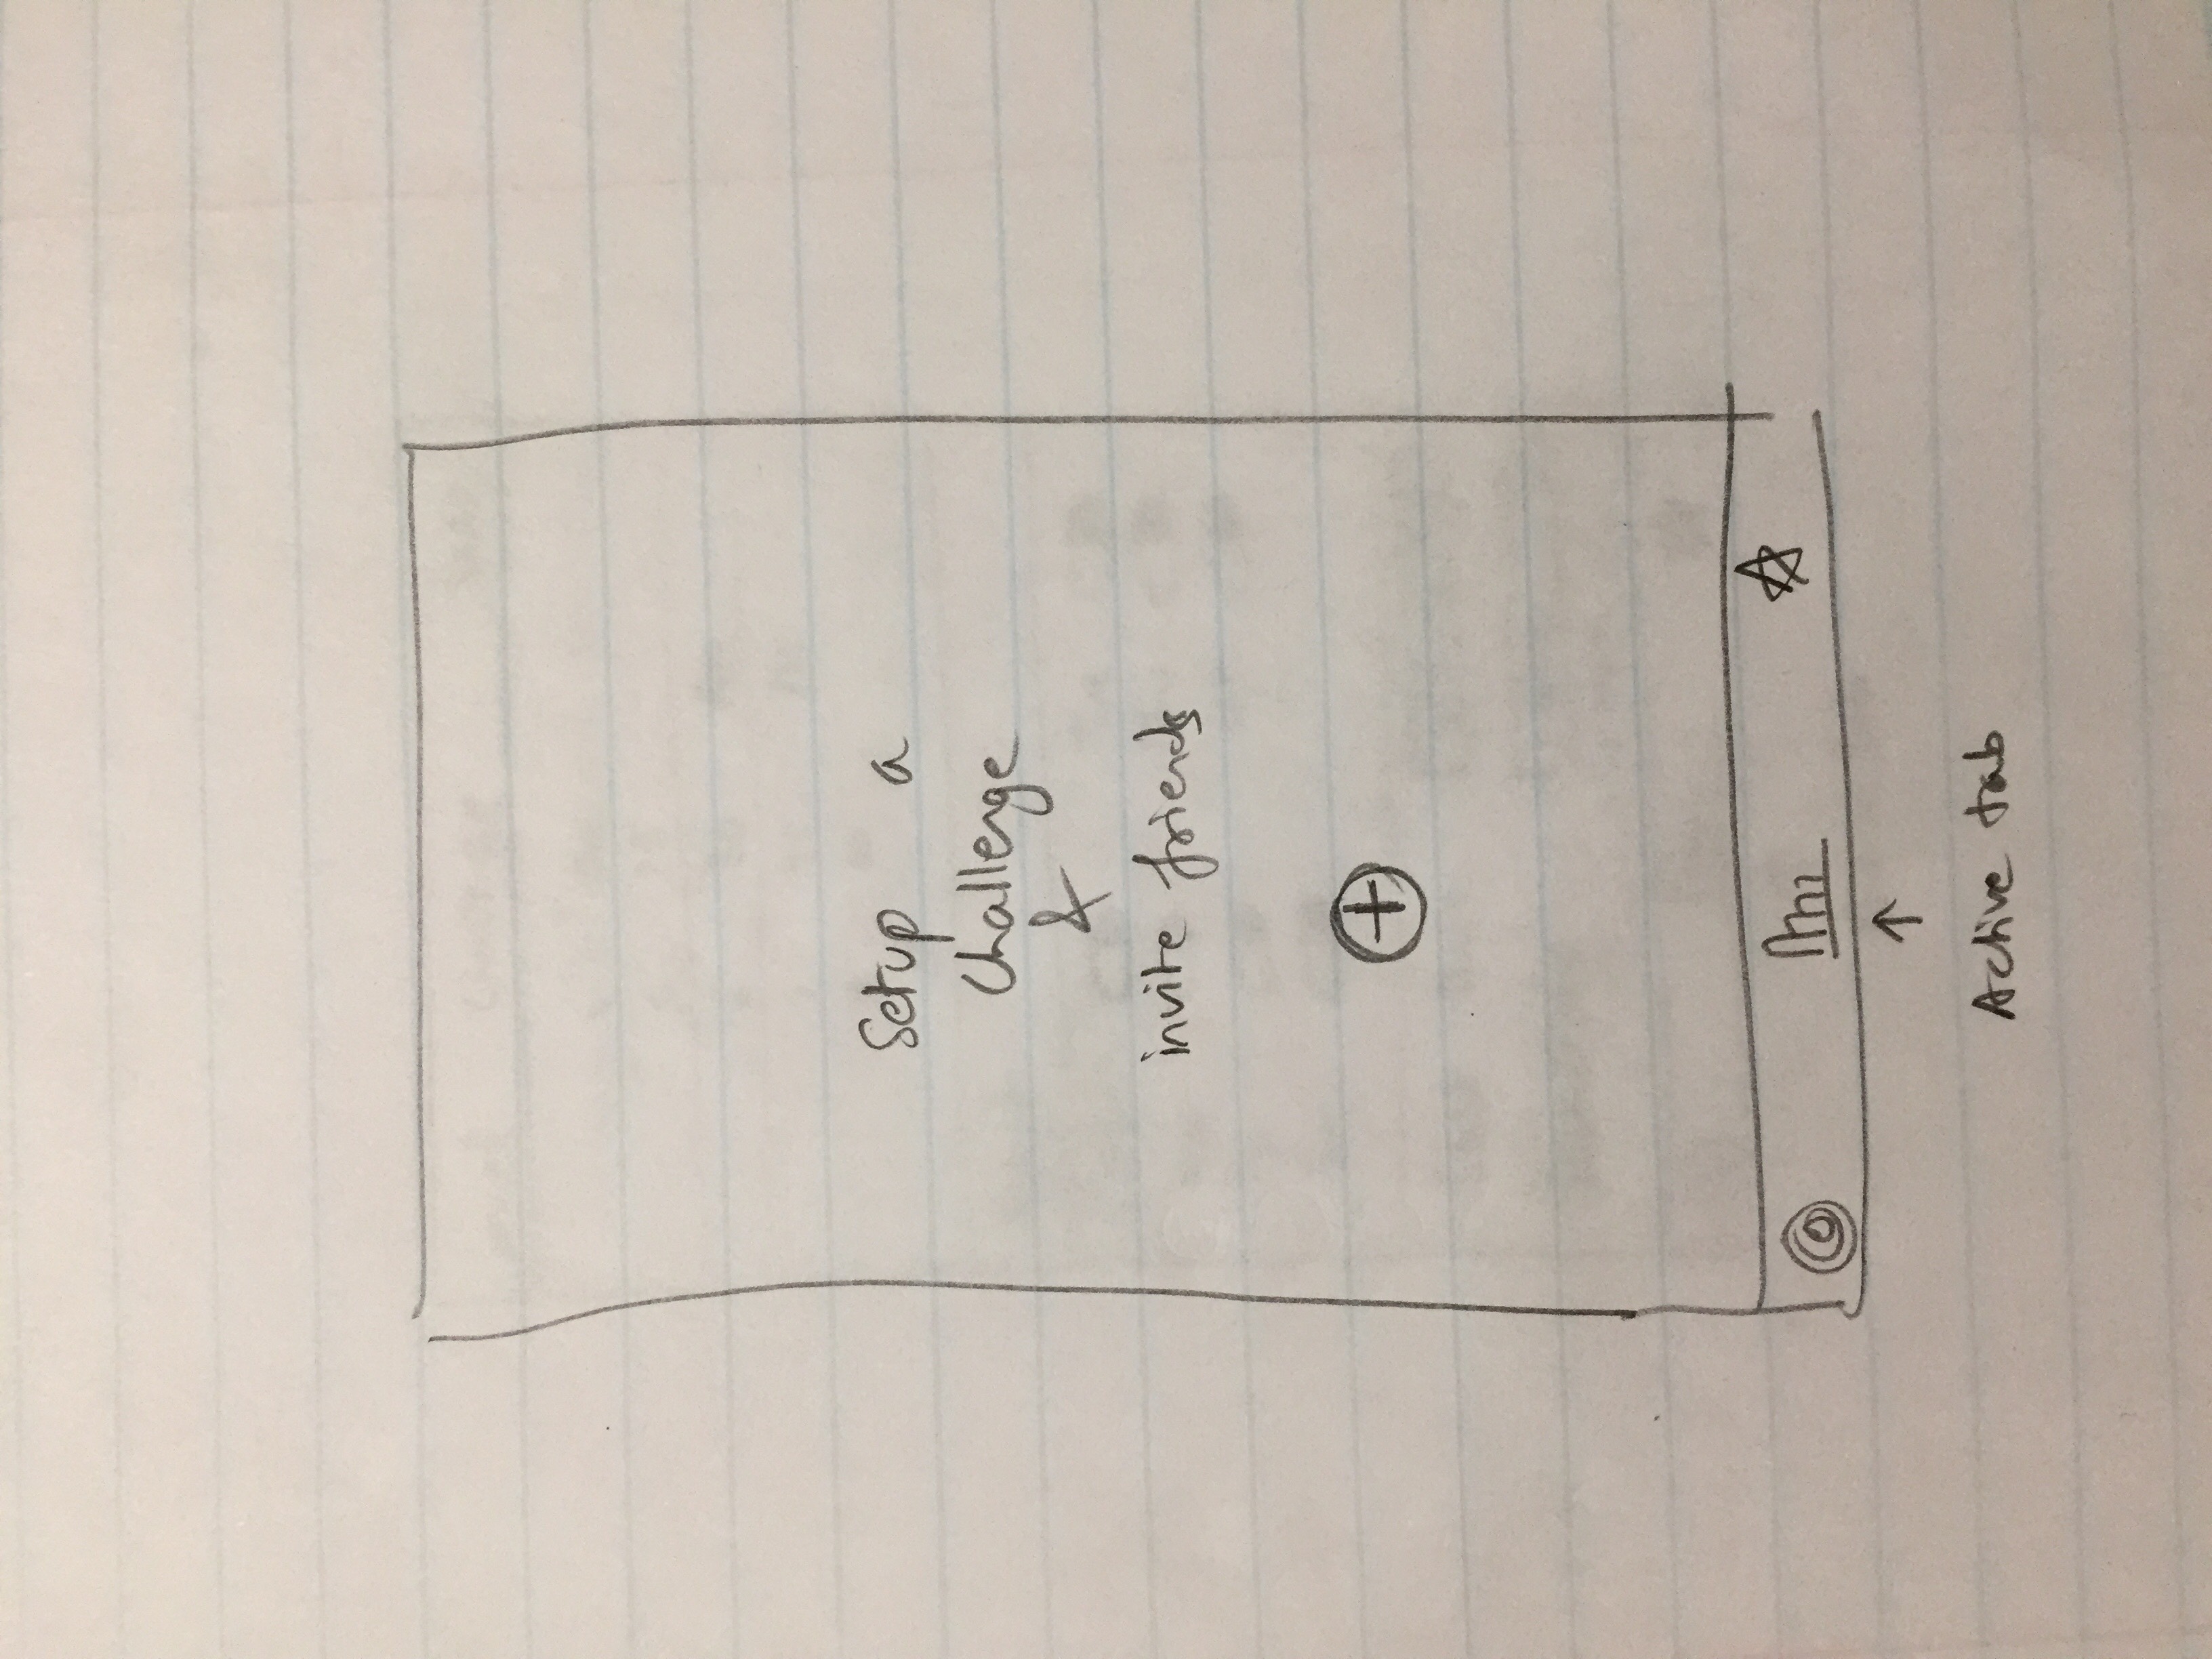 Setup a
Challenge
&
invite friends
Active tab